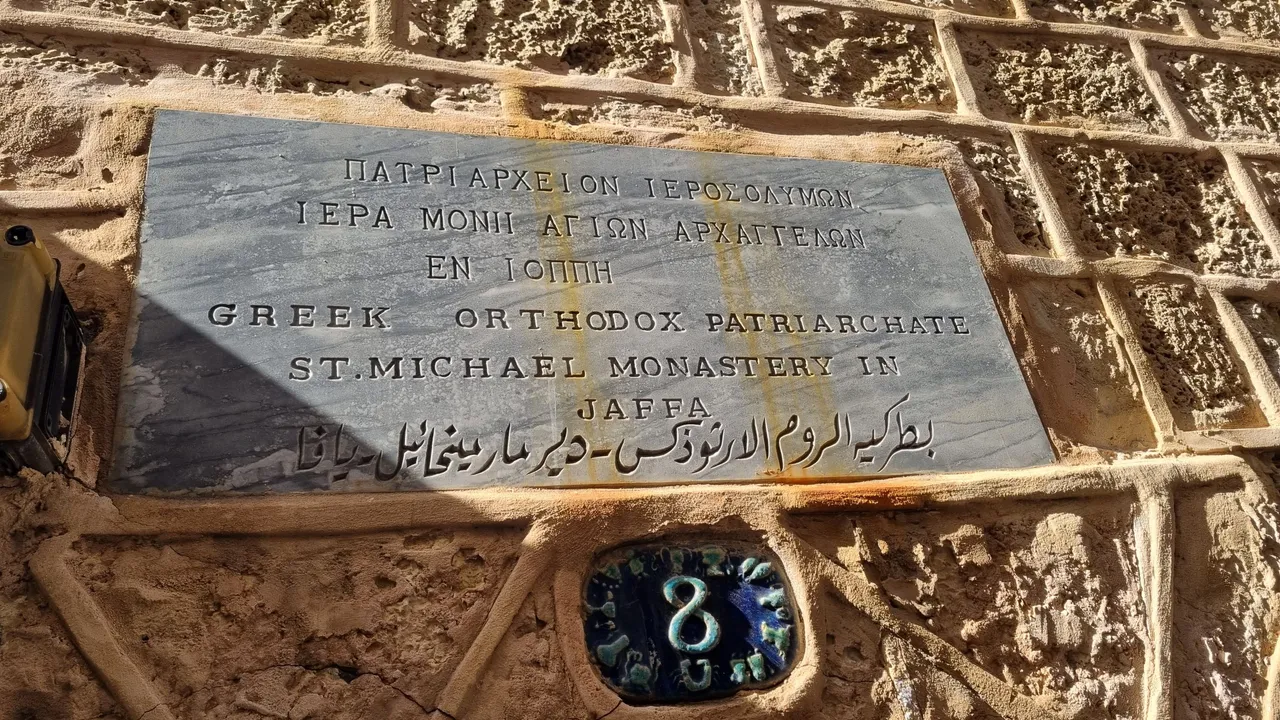 ΠΑΤΡΙΑΡΧΕΙΟΝ ΙΕΡΟΣΟΛΥΜΩΝ
ΙΕΡΑ ΜΟΝΗ ΑΓΙΩΝ ΑΡΧΑΓΓΕΛΩΝ
ΕΝ ΙΟΠΠΗ
GREEK ORTHODOX PATRIARCHATE
ST.MICHAEL MONASTERY IN
JAFFA
بطركية الروم الارثوذكس - دير مار ميخائيل - يافا
8